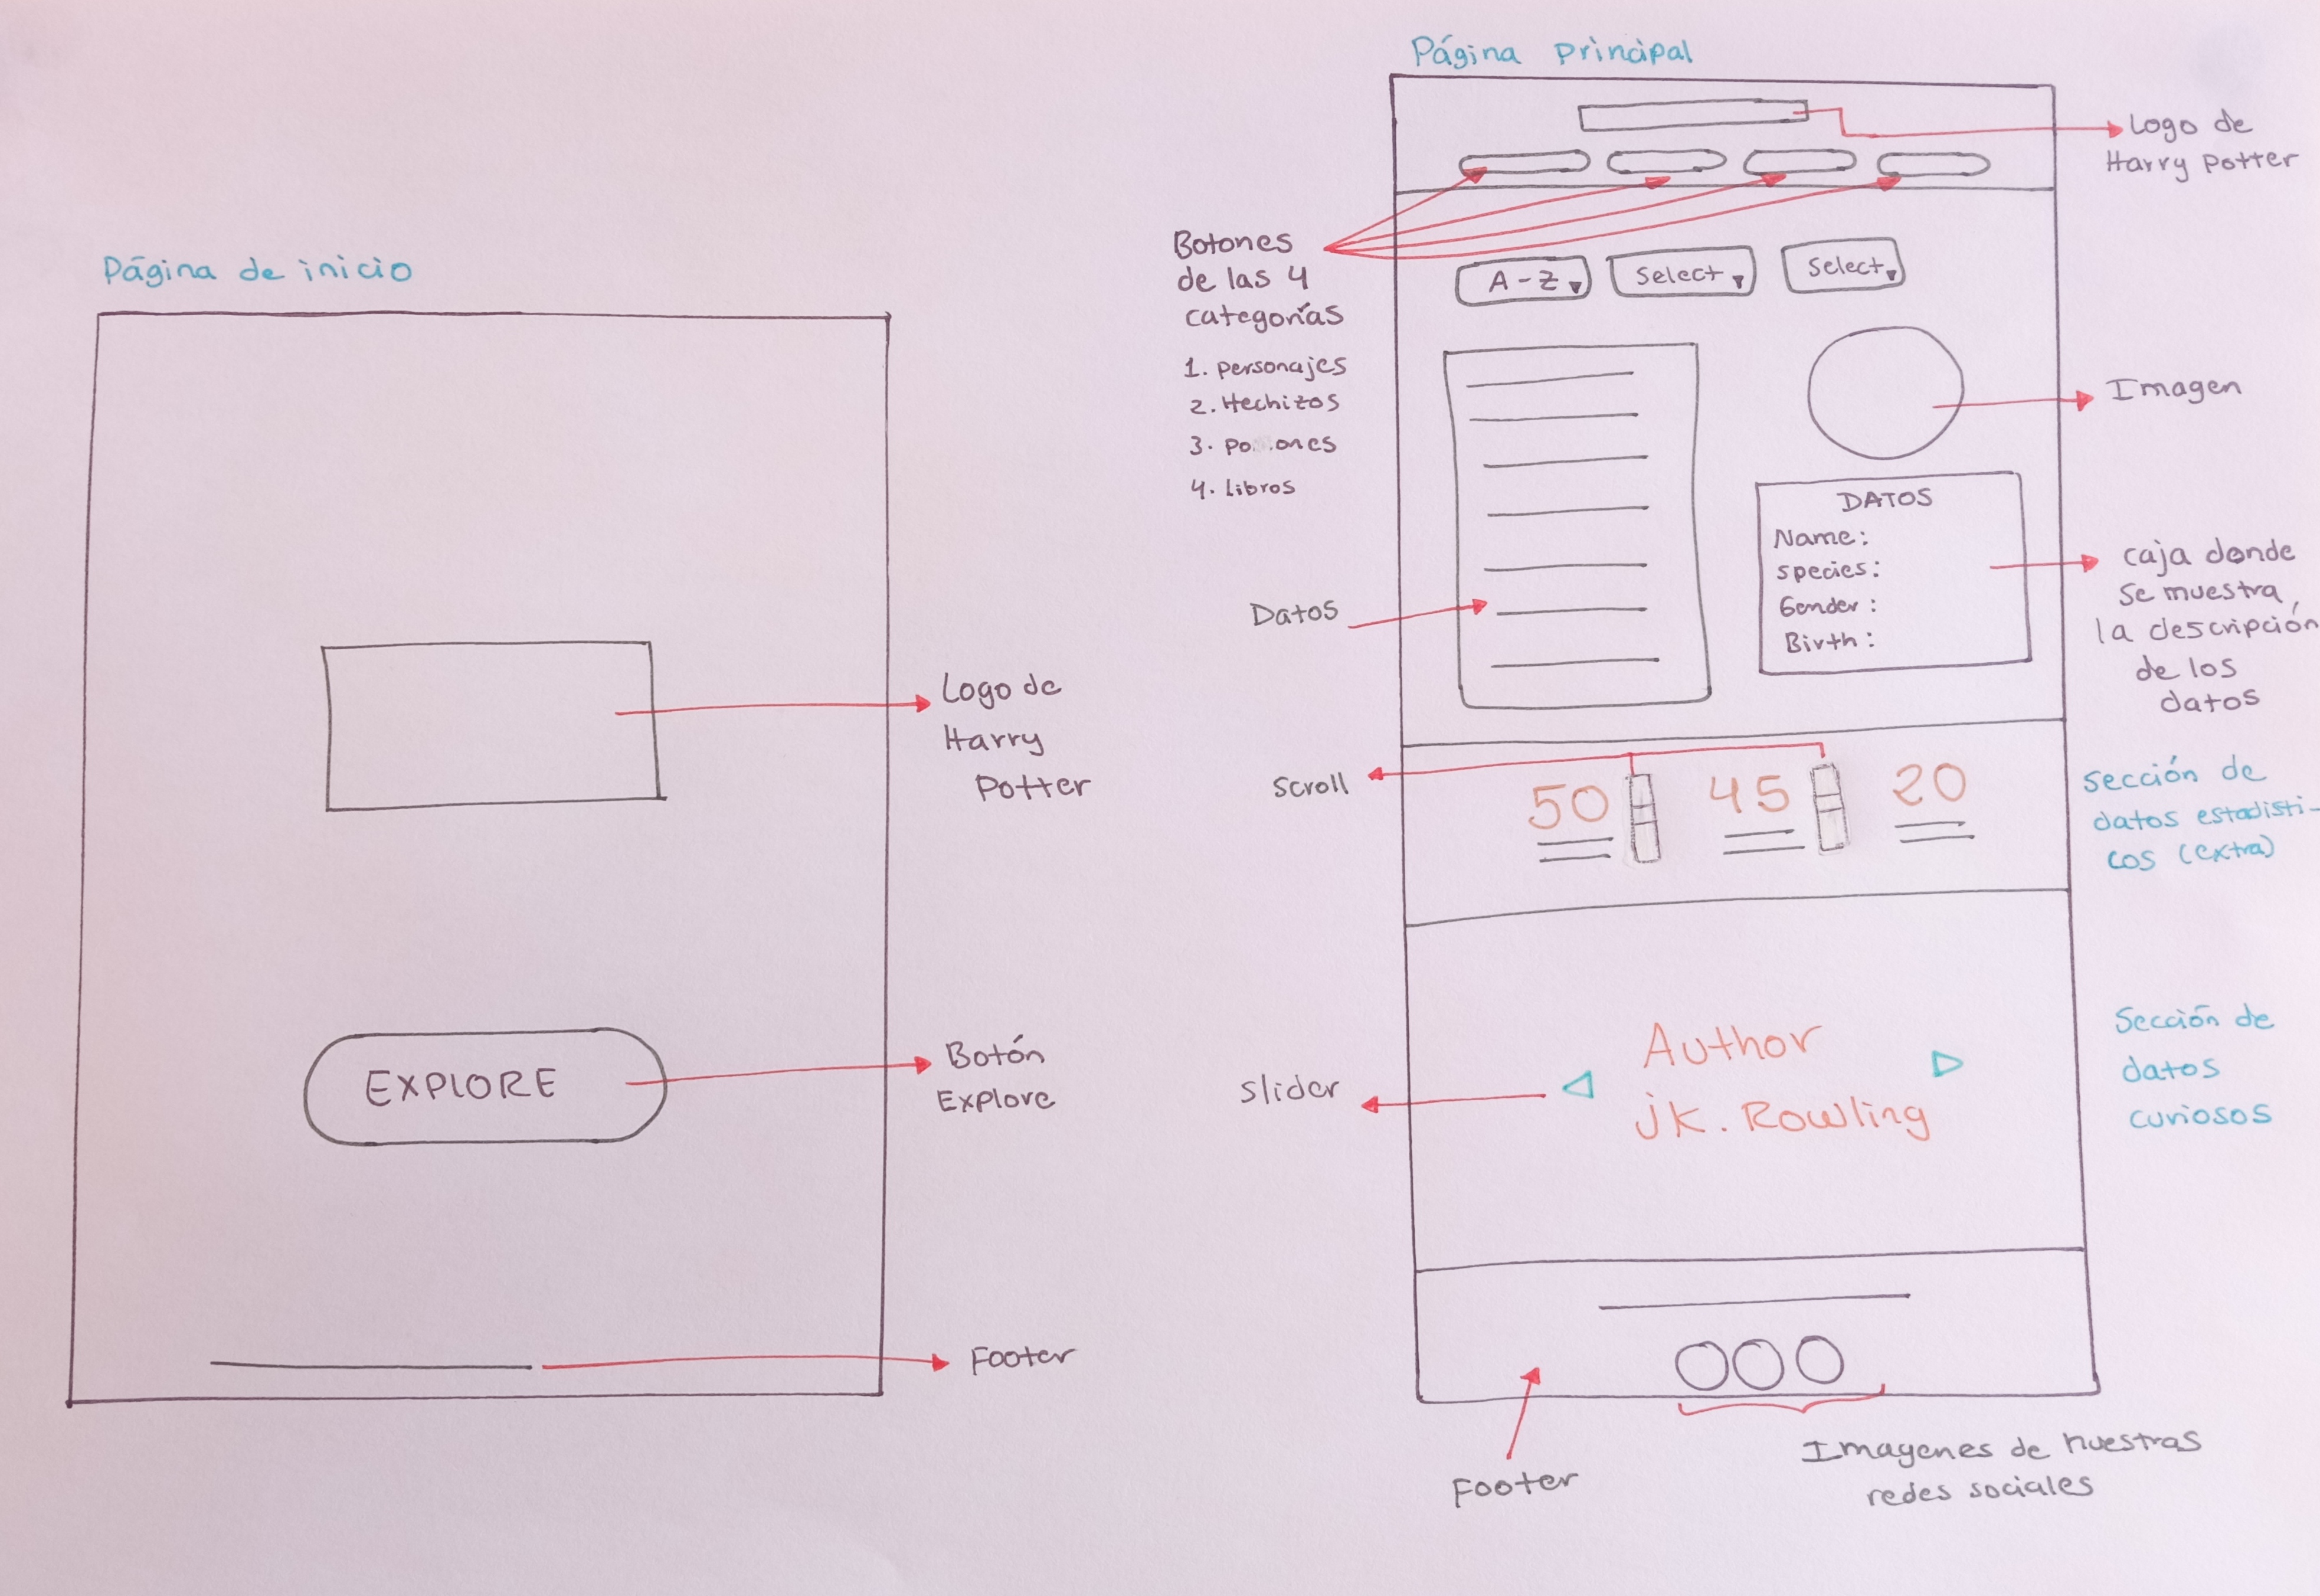 Página de inicio
Logo de
Harry
Potter
EXPLORE
Botón
Explore
Footer
Página Principal
Logo de
Harry Potter
Botones
de las 4
categorías
1. personajes
2. Hechizos
3. po ones
4. Libros
A-Z
Select
Select
Imagen
Datos
DATOS
Name:
species:
Gender:
Birth:
caja donde
se muestra
la descripción
de los
datos
scroll
50
45
20
Sección de
datos estadisti-
cos (extra)
slider
Author
jK. Rowling
Sección de
datos
curiosos
Footer
Imagenes de nuestras
redes sociales